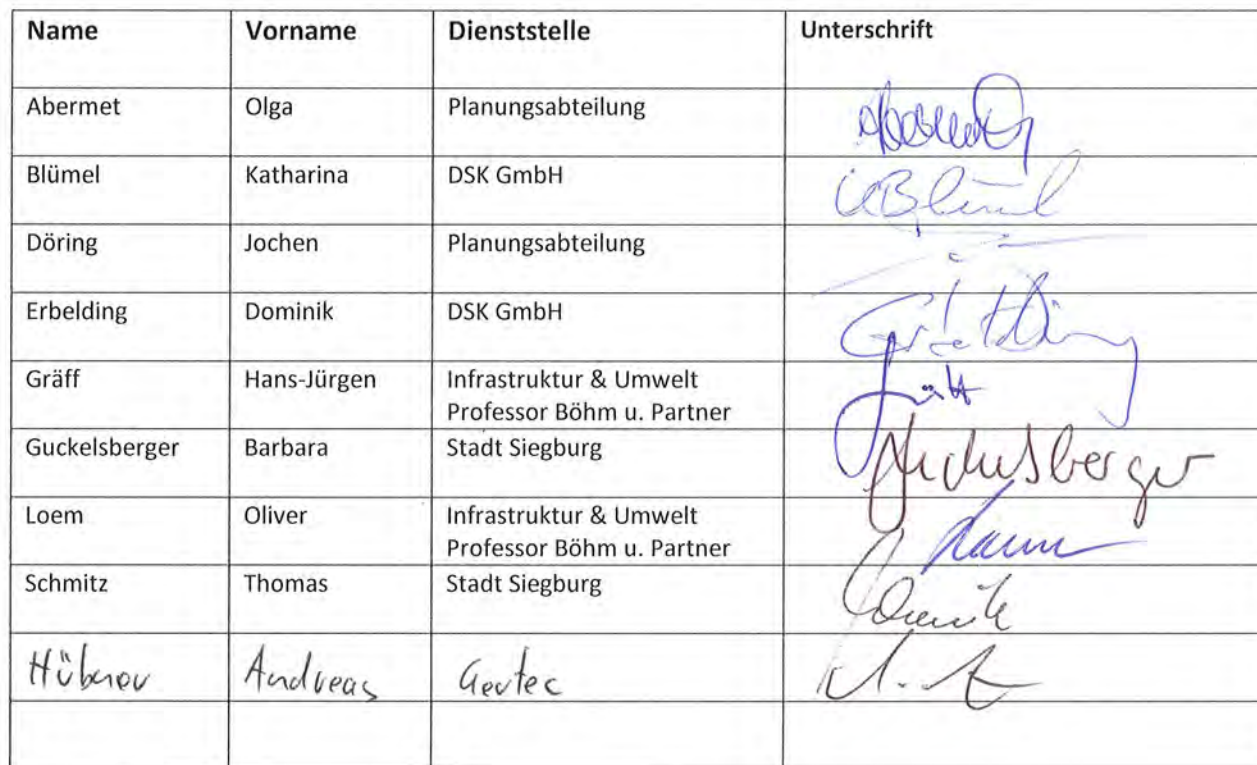 Name Vorname Dienststelle Unterschrift
Abermet Olga Planungsabteilung
Blümel Katharina DSK GmbH
Döring Jochen Planungsabteilung
Erbelding Dominik DSK GmbH
Gräff Hans-Jürgen Infrastruktur & Umwelt
Professor Böhm u. Partner
Guckelsberger Barbara Stadt Siegburg
Loem Oliver Infrastruktur & Umwelt
Professor Böhm u. Partner
Schmitz Thomas Stadt Siegburg
Hübner Andreas Gertec